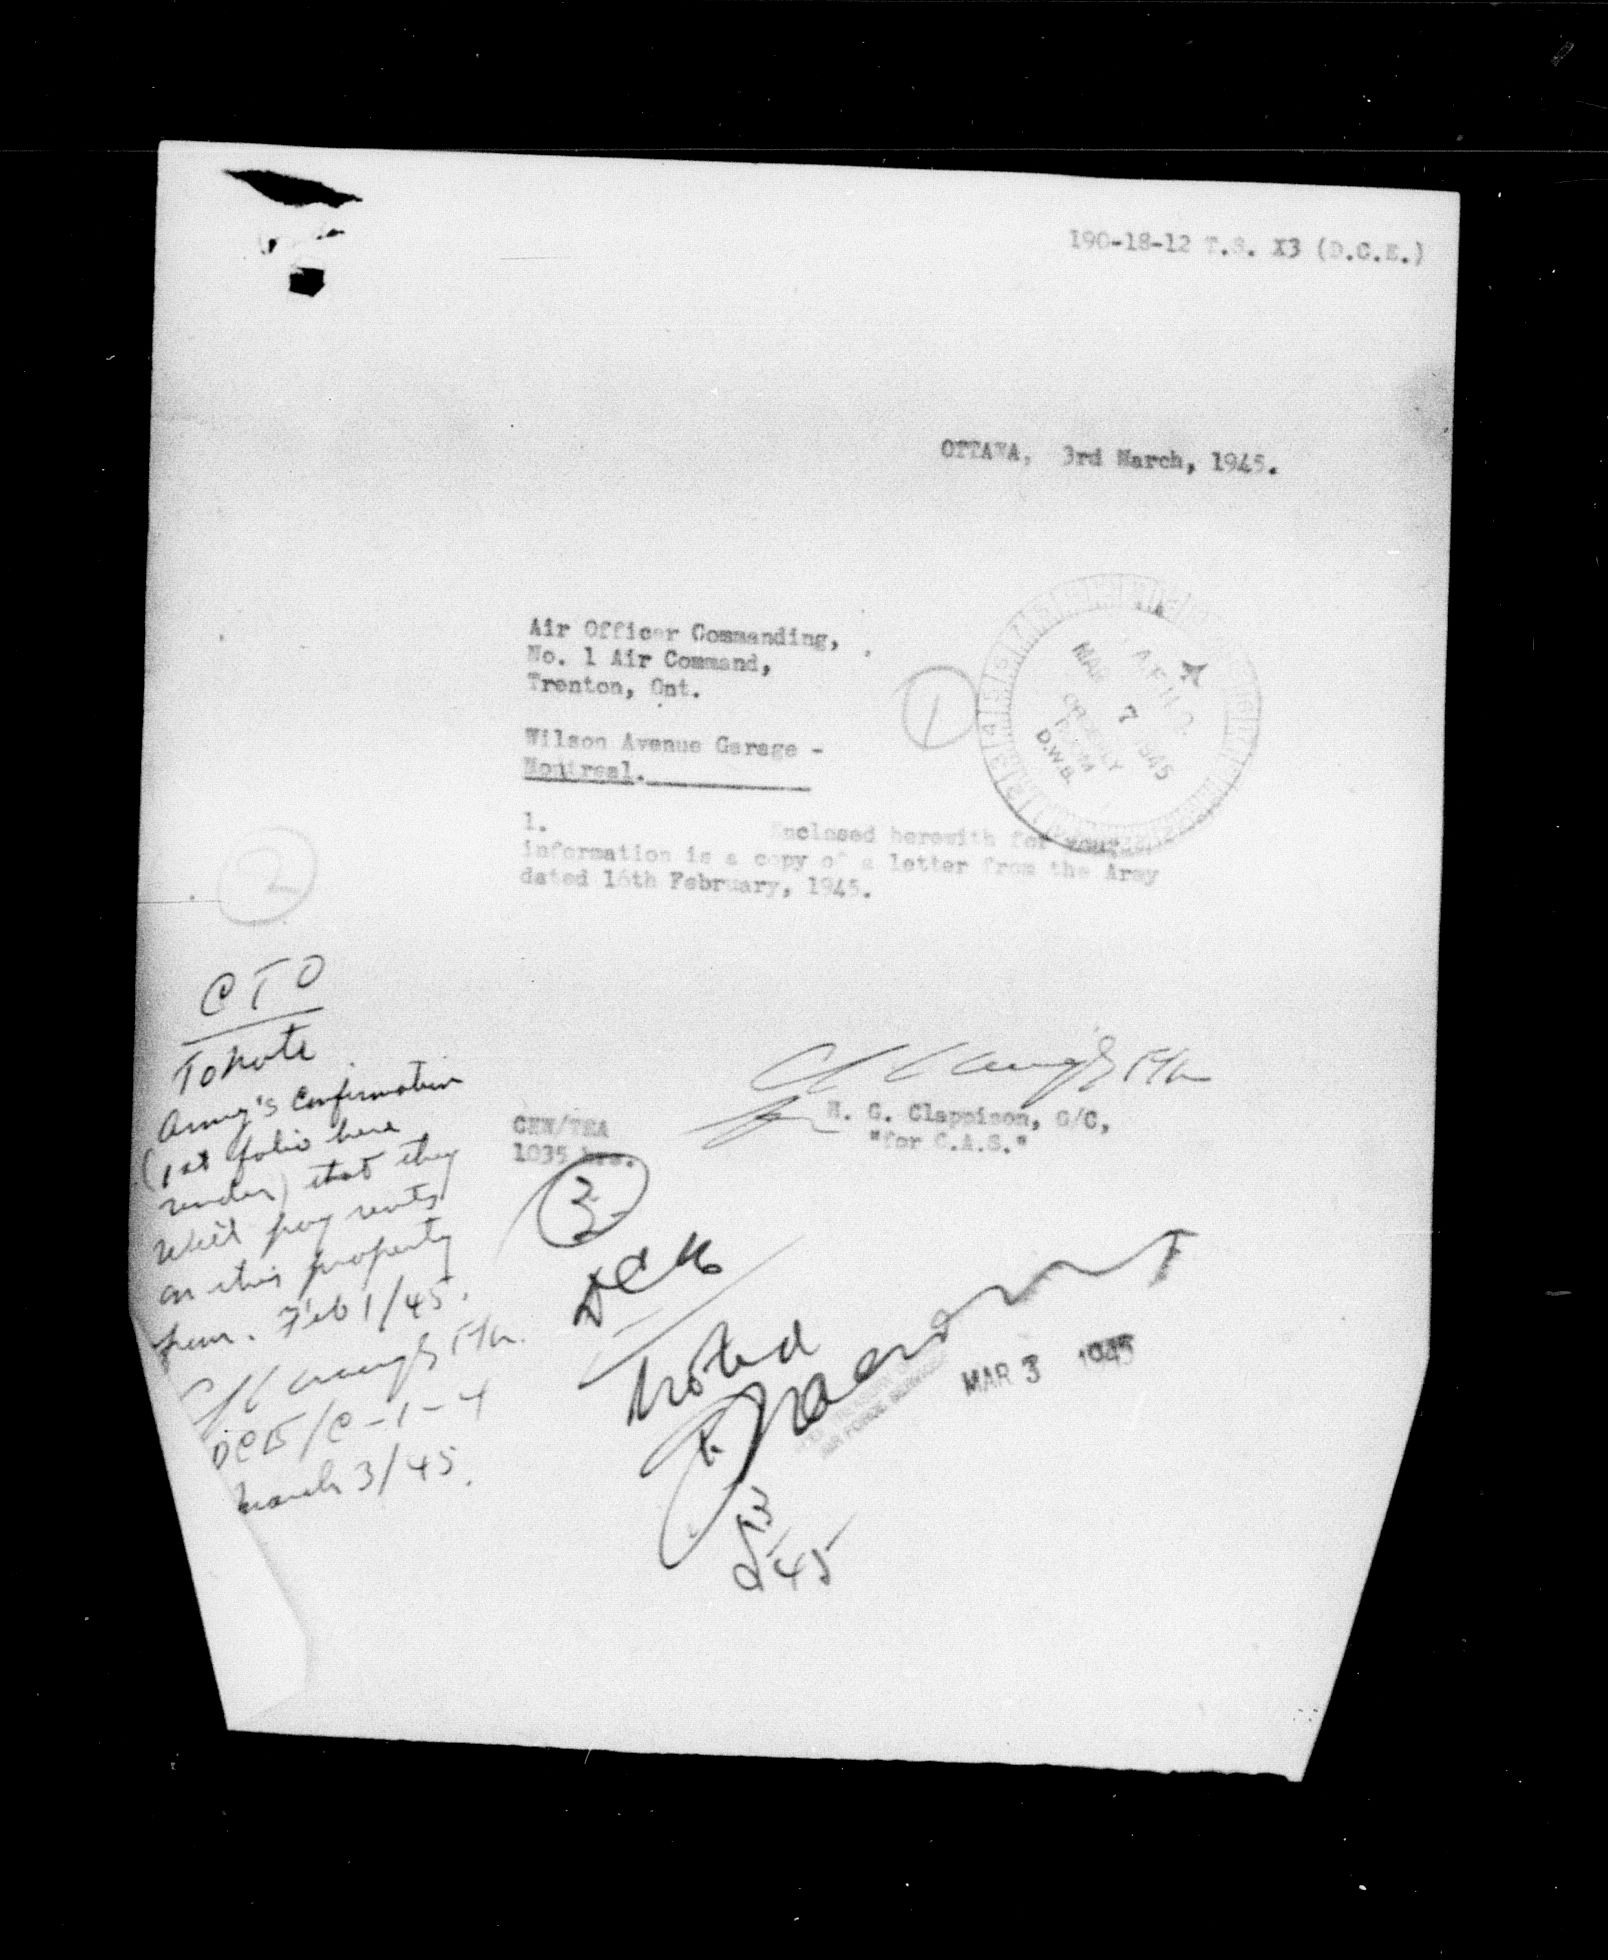 190-18-12 T.S. X3 (D.C.E.)
OTTAWA, 3rd March, 1945.
Air Officer Commanding,
No. 1 Air Command,
Trenton, Ont.
1
A.F.H.Q.
MAR 7 1945
ORDERLY
ROOM
D.W.B.
Wilson Avenue Garage -
Montreal.
1. Enclosed herewith for your
information is a copy of a letter from the Army
dated 16th February, 1945.
2
CTO
To note
Army's Confirmation
(1st folio here
under) that they
will pay rents
on this property
from. Feb 1/45.
March 3/45.
H. G. Clappison, G/C,
"for C.A.S."
1035 hrs.
3
Noted
MAR 3 1945
AIR FORCE SERVICES
3/45